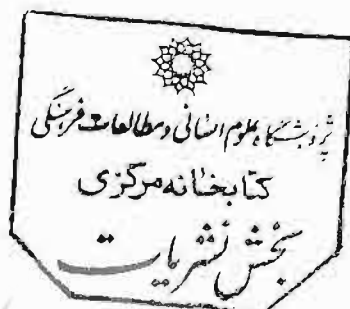 پژوهشگاه علوم انسانی و مطالعات فرهنگی
کتابخانه مرکزی
بخش نشریات